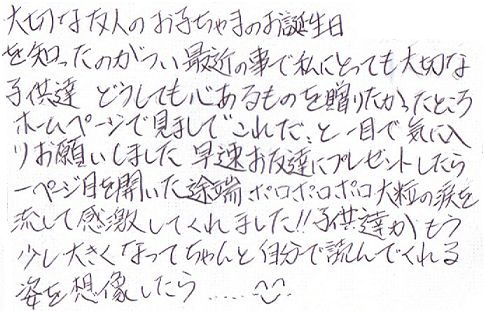 大切な友人のお子ちゃまのお誕生日
を知ったのがつい最近の事で私にとっても大切な
子供達 どうしても心あるものを贈りたかったところ
ホームページで見まして"これだ、と一目で気に入
りお願いしました 早速お友達にプレゼントしたら
一ページ目を開いた途端 ポロポロポロ大粒の涙を
流して感激してくれました!!子供達がもう
少し大きくなってちゃんと自分で読んでくれる
姿を想像したら......^^